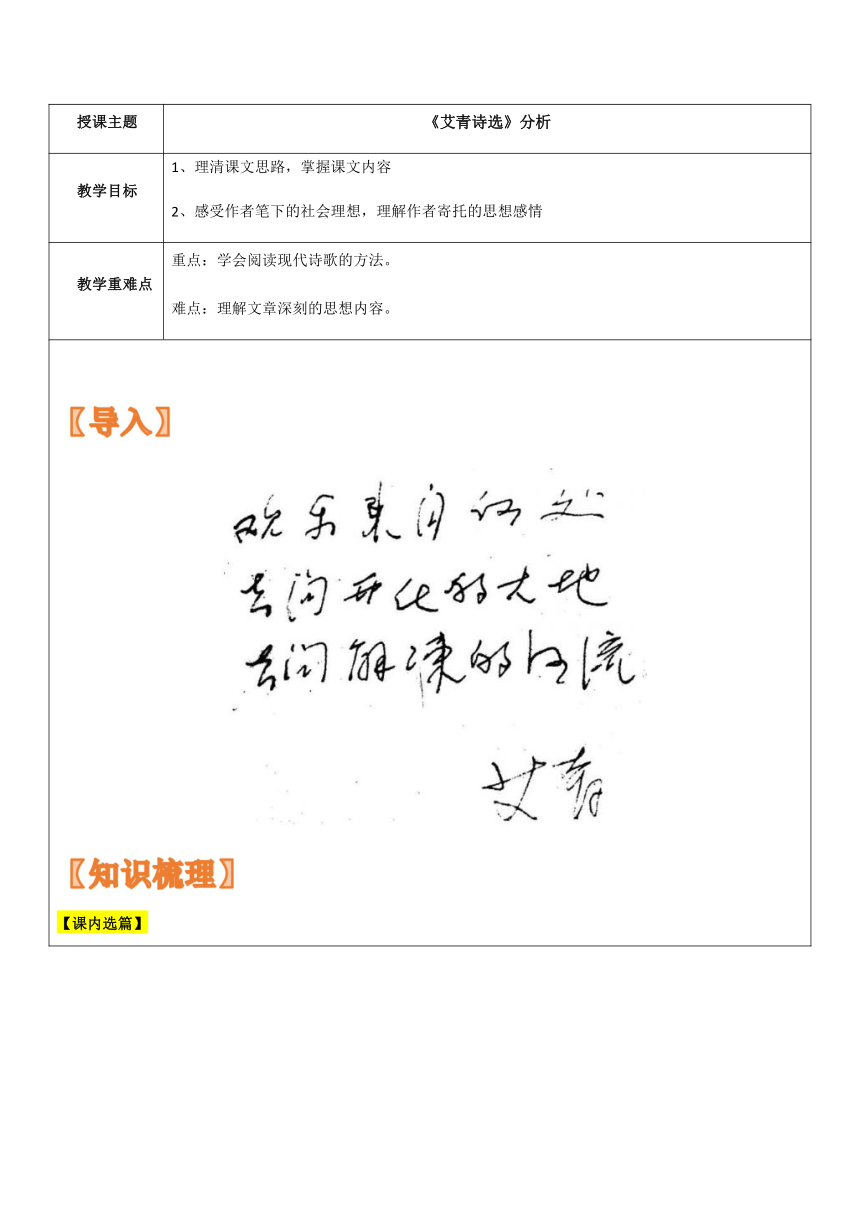 授课主题
《艾青诗选》分析
教学目标
1、理清课文思路，掌握课文内容
2、感受作者笔下的社会理想，理解作者寄托的思想感情
教学重难点
重点：学会阅读现代诗歌的方法。
难点：理解文章深刻的思想内容。
〖导入〗
欢乐来自何处
去问开化的大地
去问解冻的河流
艾青
〖知识梳理〗
【课内选篇】